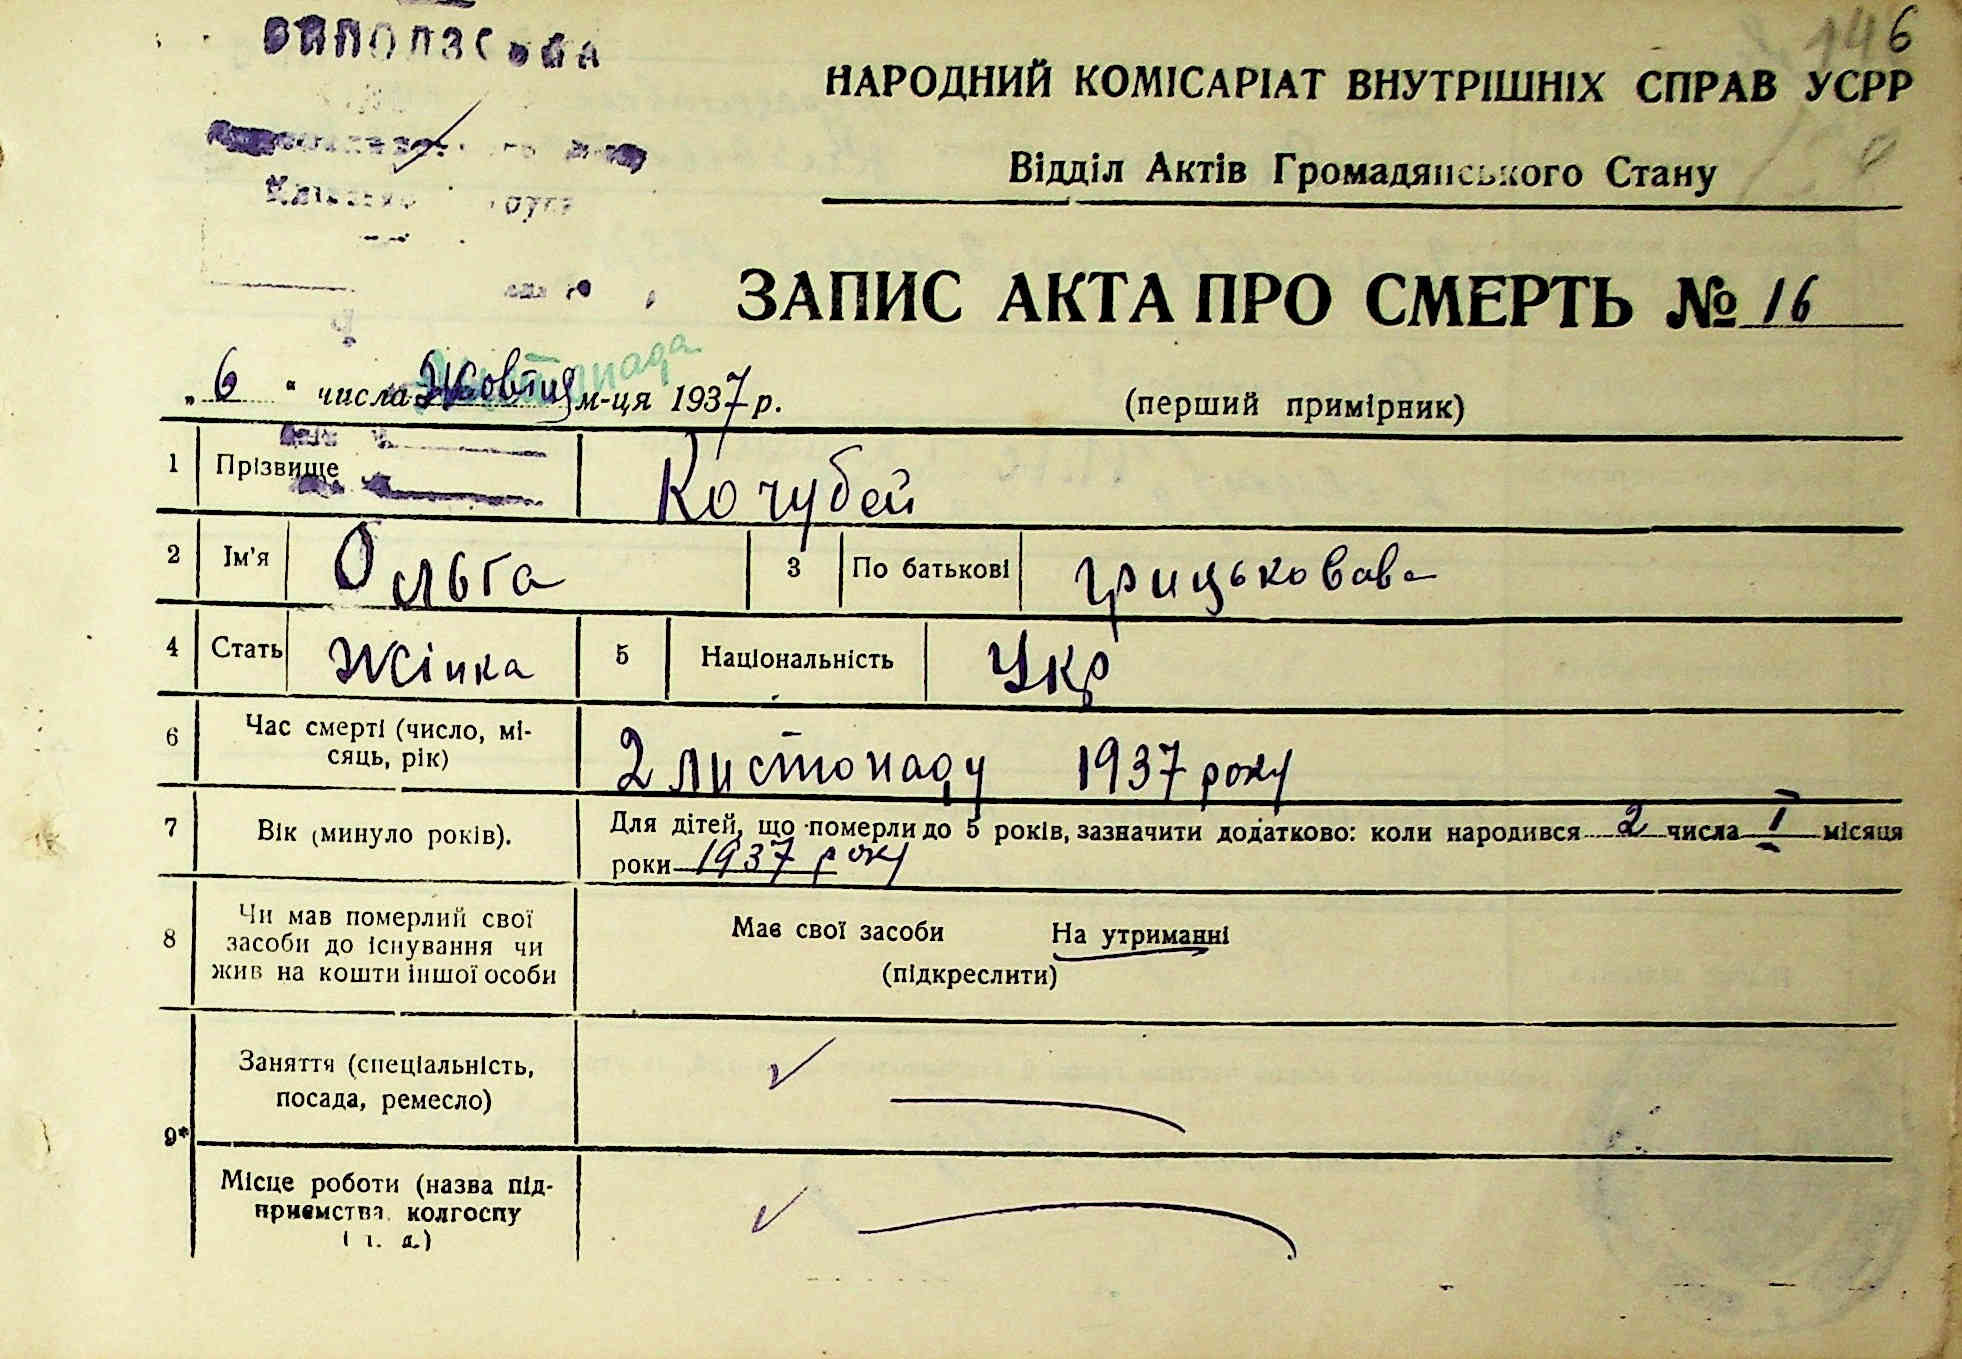 146
НАРОДНИЙ КОМІСАРІАТ ВНУТРІШНІХ СПРАВ УСРР
Відділ Актів Громадянського Стану
ЗАПИС АКТА ПРО СМЕРТЬ № 16
листопада
„ 6 “ числа Жовтня м-ця 1937 р. (перший примірник)
1 Прізвище Кочубей
2 Ім'я Ольга 3 По батькові Грицьковава
4 Стать Жінка 5 Національність Укр
6 Час смерті (число, мі-
сяць, рік) 2 листопаду 1937 року
7 Вік (минуло років). Для дітей, що померли до 5 років, зазначити додатково: коли народився 2 числа I місяця
роки 1937 року
8 Чи мав померлий свої
засоби до існування чи
жив на кошти іншої особи
Має свої засоби На утриманні
(підкреслити)
9* Заняття (спеціальність,
посада, ремесло)
Місце роботи (назва під-
приємства, колгоспу
і т. д.)